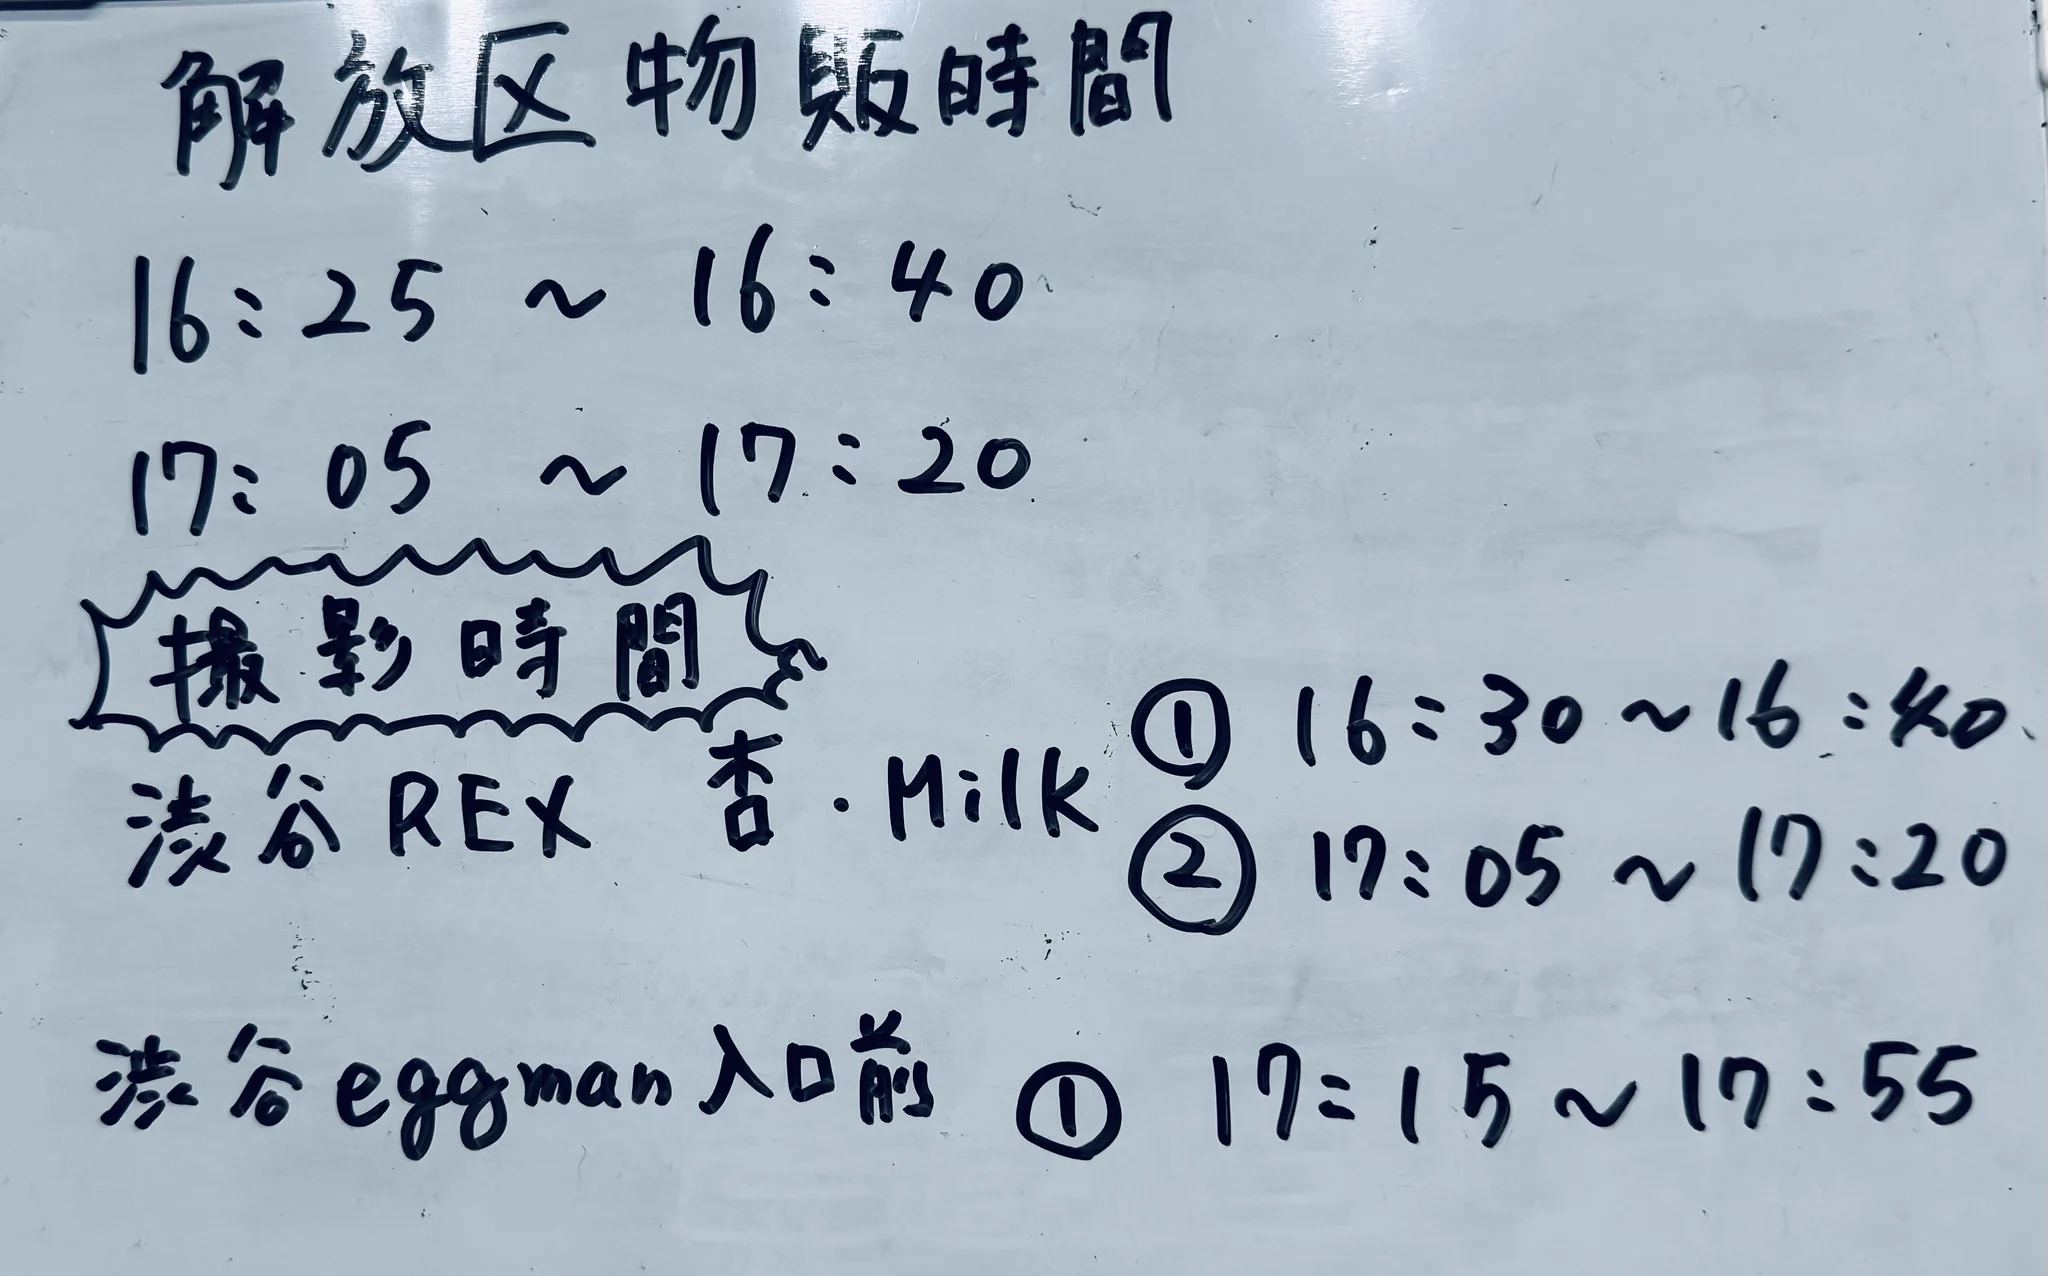 解放区物販時間
16:25 ~ 16:40
17:05 ~ 17:20
撮影時間
渋谷REX 杏・Milk ① 16:30~16:40
② 17:05~17:20
渋谷eggman入口前 ① 17:15~17:55